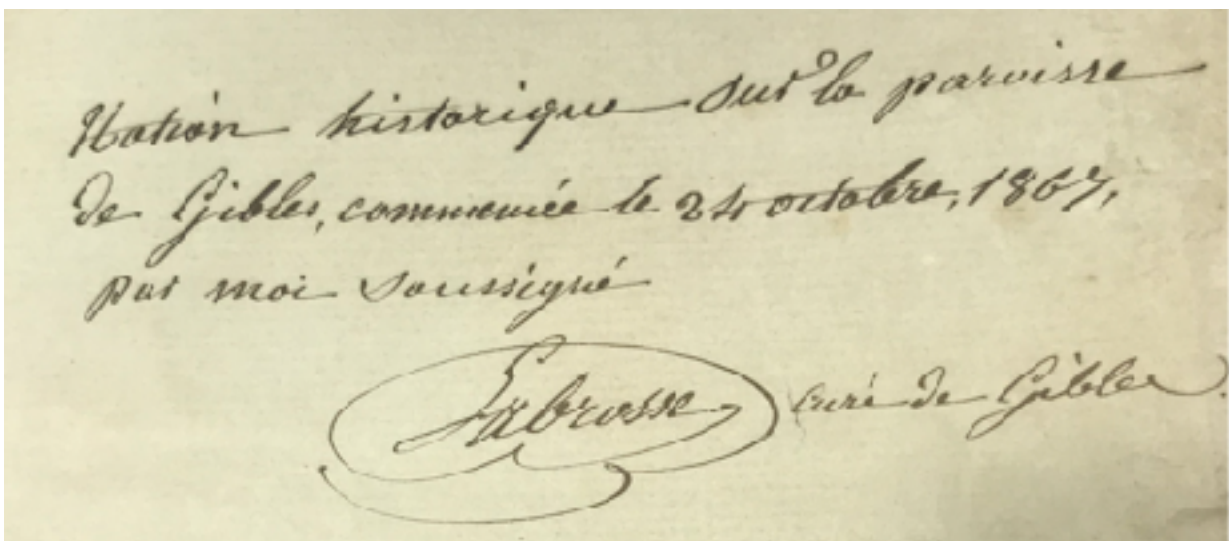 Notion historique sur la paroisse
de Gibles, commencée le 24 octobre, 1867,
par moi soussigné
Labrosse curé de Gibles